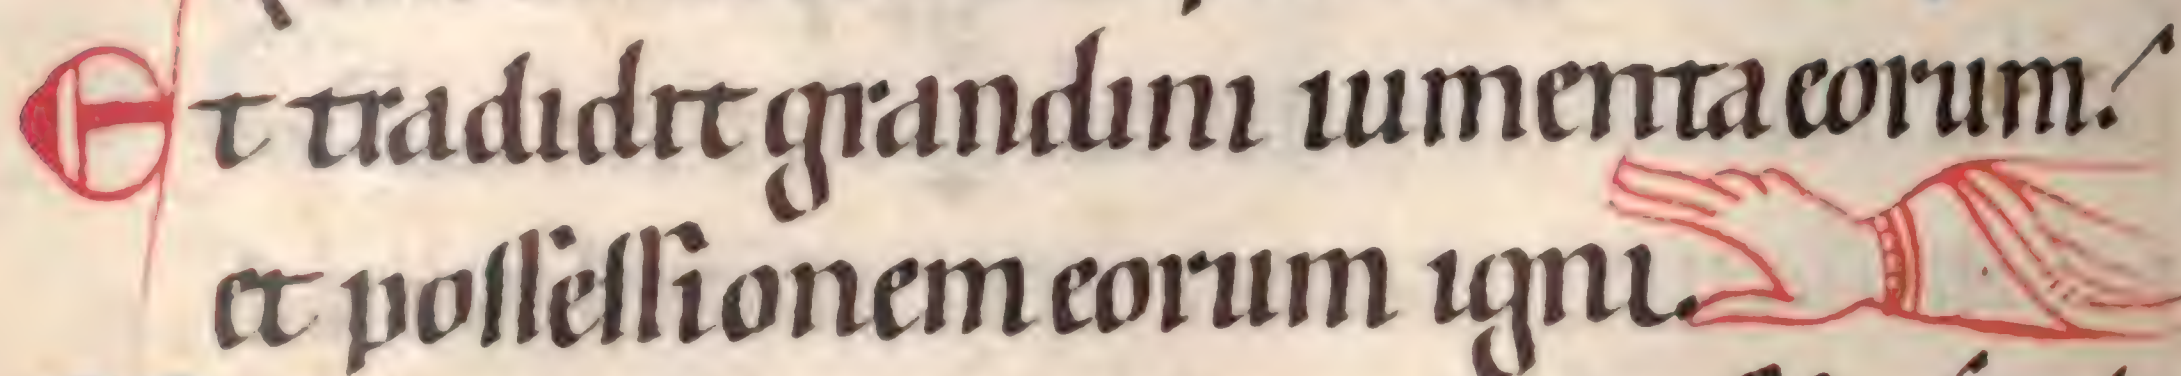 Et tradidit grandini iumenta eorum.
et possessionem eorum igni.